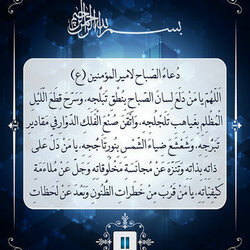 بسم الله الرحمن الرحيم
دُعاءُ الصّباح لامير المؤمنين (ع)
اَللّهُمَّ يا مَنْ دَلَعَ لِسانَ الصَّباحِ بِنُطْقِ تَبَلُّجِهِ، وَسَرَّحَ قِطَعَ اللَّيْلِ
الْمُظْلِمِ بِغَياهِبِ تَلَجْلُجِهِ، وَاَتْقَنَ صُنْعَ الْفَلَكِ الدَّوّارِ في مَقاديرِ
تَبَرُّجِهِ، وَشَعْشَعَ ضِياءَ الشَّمْسِ بِنُورِ تَاَجُّجِهِ، يا مَنْ دَلَّ عَلى
ذاتِهِ بِذاتِهِ وَتَنَزَّهَ عَنْ مُجانَسَةِ مَخْلُوقاتِهِ وَجَلَّ عَنْ مُلاءَمَةِ
كَيْفِيّاتِهِ، يا مَنْ قَرُبَ مِنْ خَطَراتِ الظُّنُونِ وَبَعُدَ عَنْ لَحَظاتِ